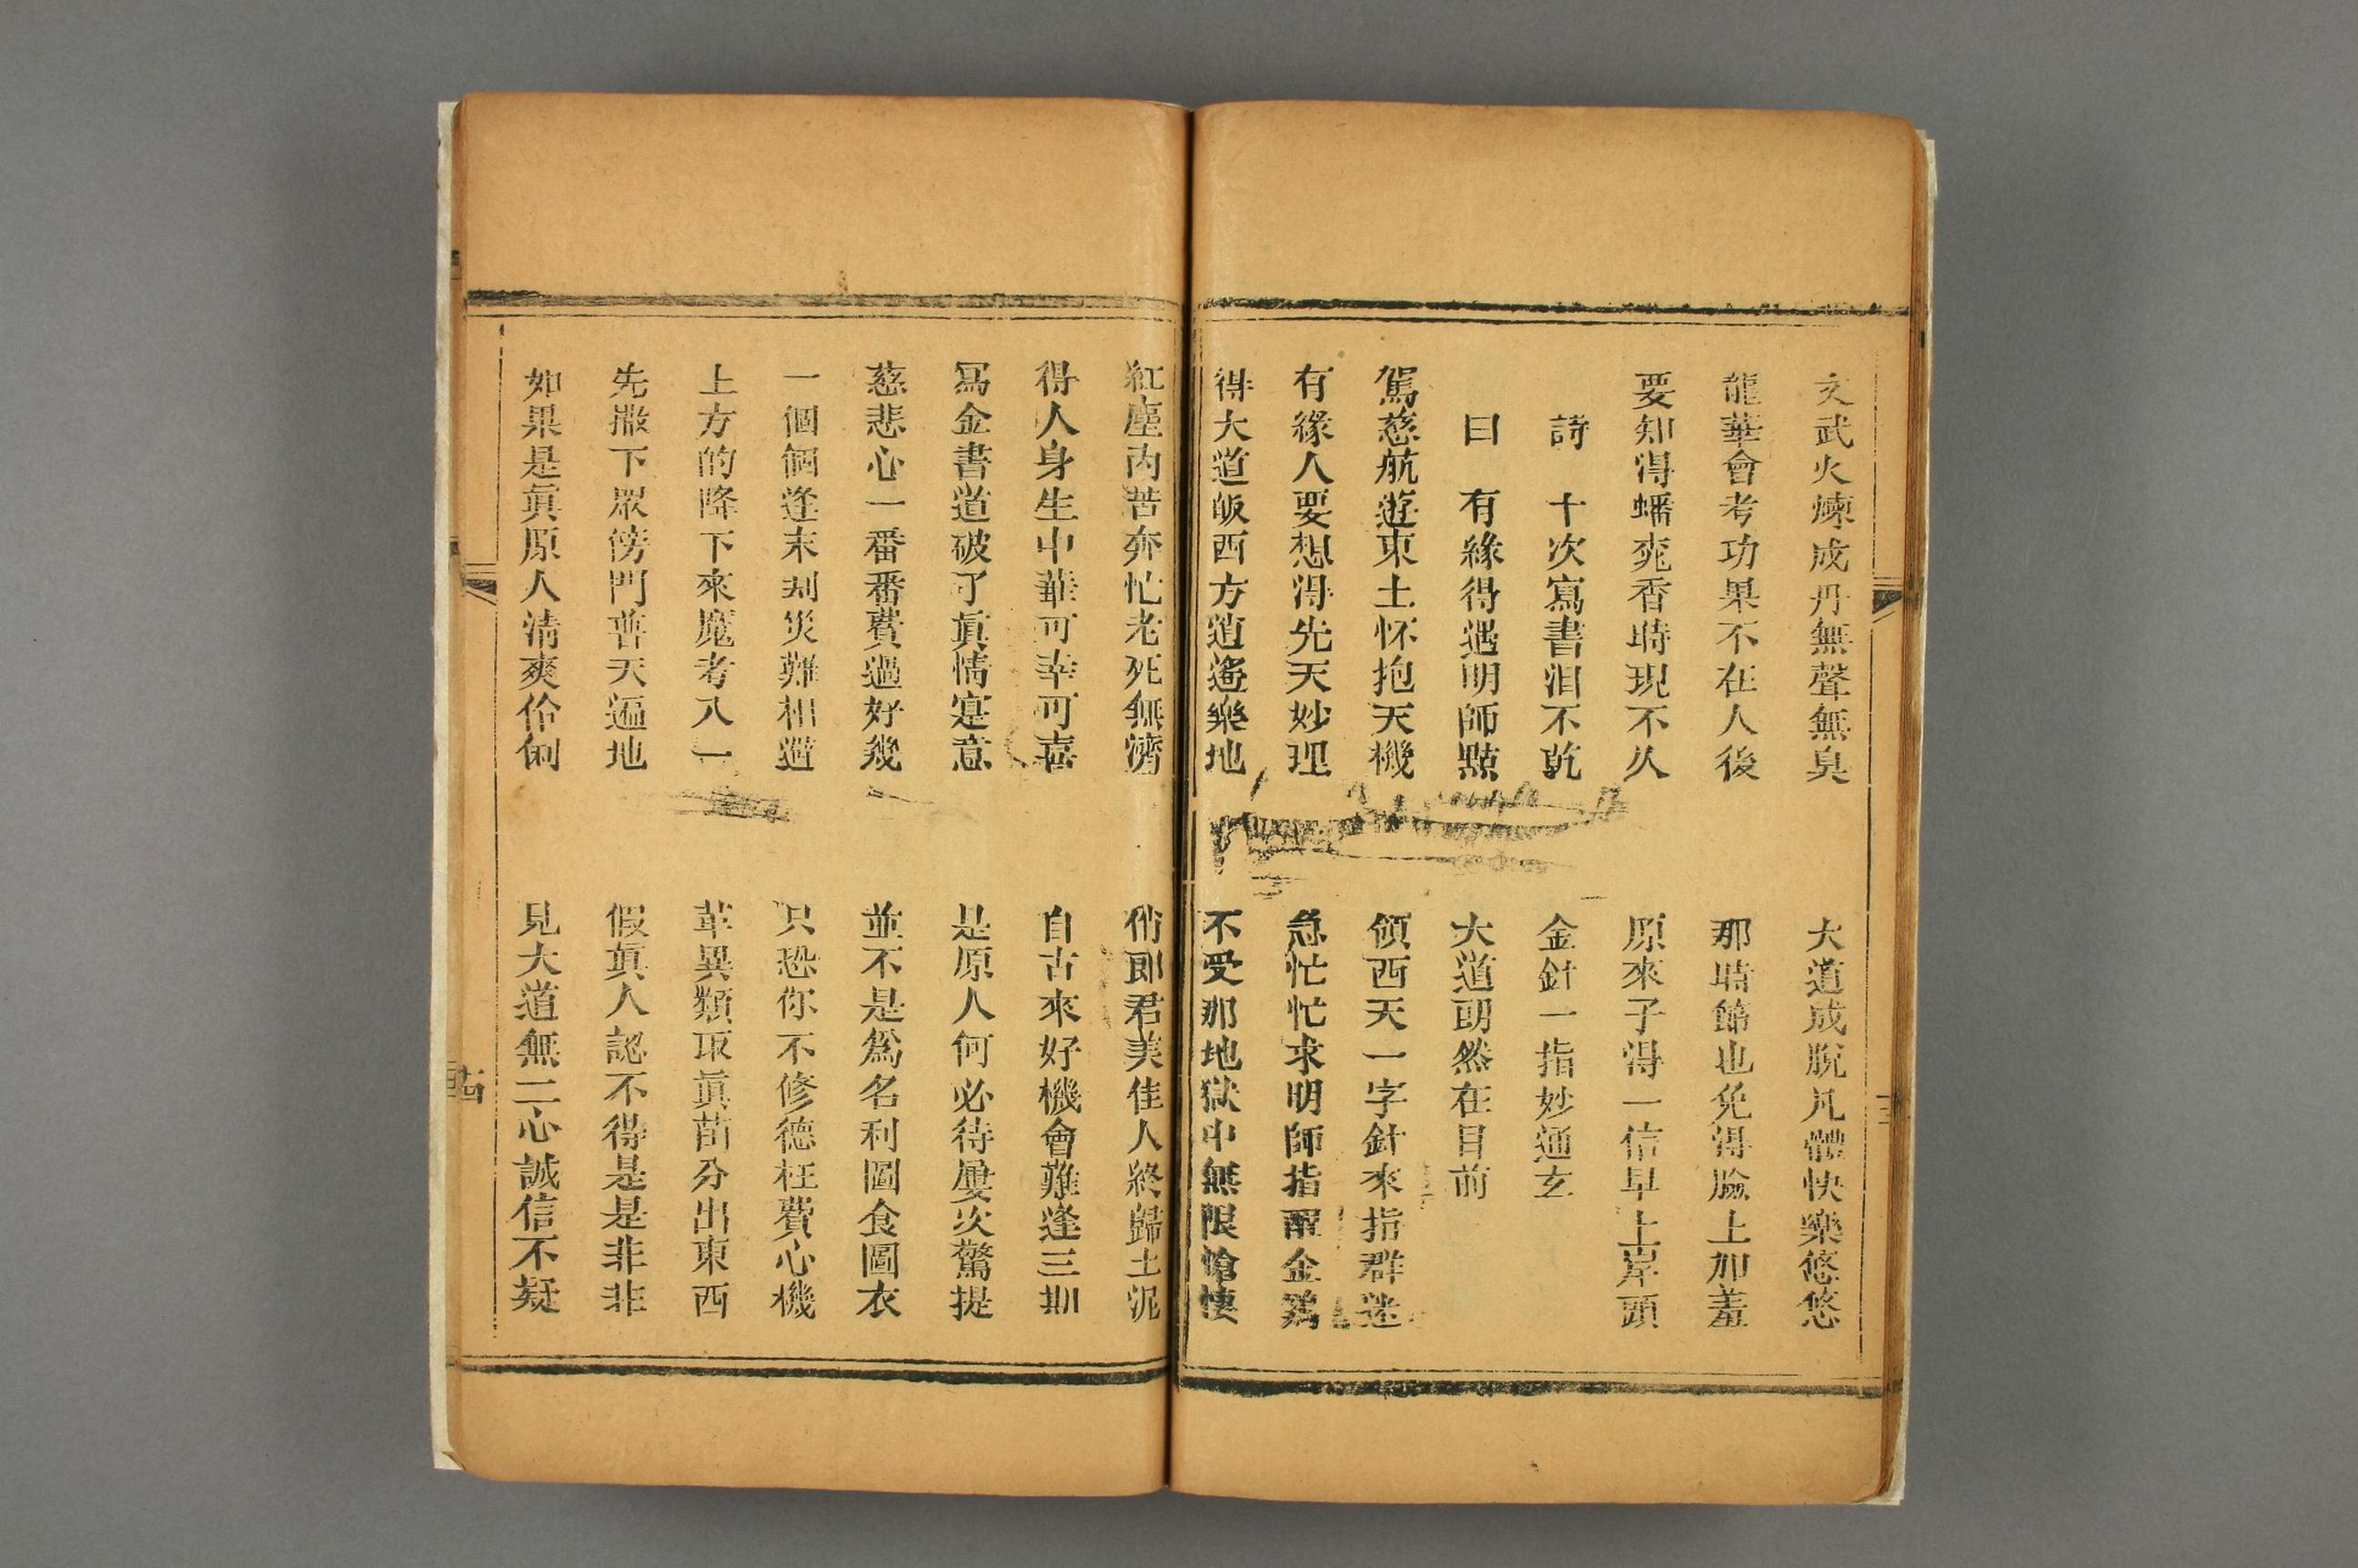 文武火煉成丹無聲無臭　大道成脫凡體快樂悠悠
龍華會考功果不在人後　那時節也免得臉上加羞
要知得蟠桃香時現不久　原來子得一信早上岸頭
詩　十次寫書泪不乾　金針一指妙通玄
曰　有緣得遇明師點　大道朗然在目前
駕慈航遊東土怀抱天機　領西天一字針來指群迷
有緣人要想得先天妙理　急忙忙求明師指醒金鷄
得大道皈西方逍遙樂地　不受那地獄中無限愴悽
紅塵內苦奔忙老死無濟　俏郎君美佳人終歸土泥
得人身生中華可幸可喜　自古來好機會難逢三期
寫金書道破了眞情寔意　是原人何必待屢次驚提
慈悲心一番番費過好幾　並不是爲名利圖食圖衣
一個個逢末刼災難相遇　只恐你不修德枉費心機
上方的降下來魔考八一　革異類取眞苗分出東西
先撒下眾傍門普天遍地　假眞人認不得是是非非
如果是眞原人清爽伶俐　見大道無二心誠信不疑
十四